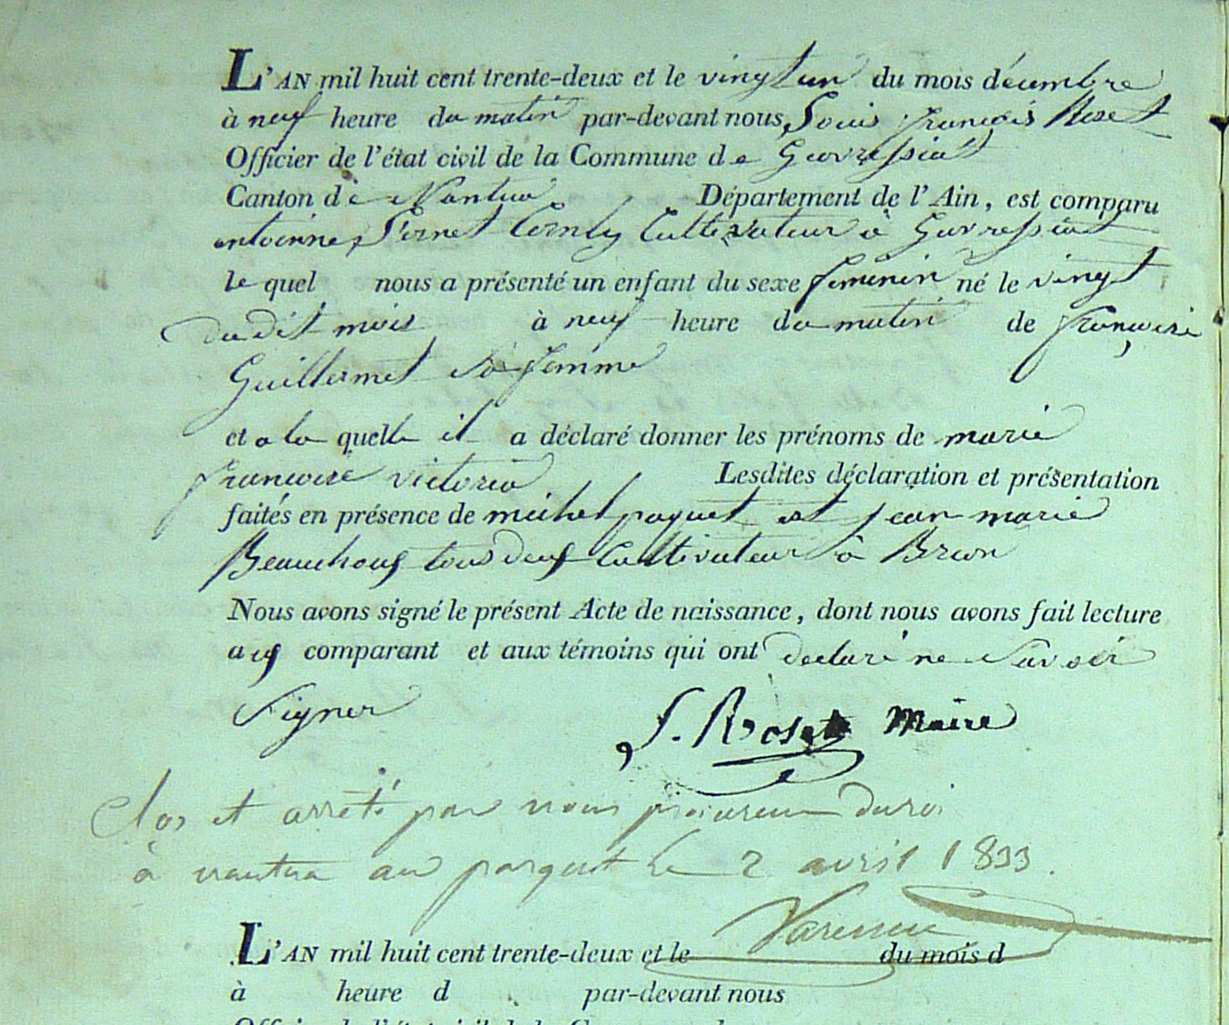 L'AN mil huit cent trente-deux et le vingt un du mois décembre
à neuf heure du matin par-devant nous, Louis françois Roset
Officier de l'état civil de la Commune de Gevressiat
Canton de Nantua Département de l'Ain, est comparu
antoinne Pernet Cornly Cultivateur à Gevressiat
le quel nous a présenté un enfant du sexe feminin né le vingt
du dit mois à neuf heure du matin de françoise
Guillermet Sa femme
et a la quelle il a déclaré donner les prénoms de marie
francoise victoria Lesdites déclaration et présentation
faites en présence de michel paquet et jean marie
tous deux Cultivateur à Brion
Nous avons signé le présent Acte de naissance, dont nous avons fait lecture
aux comparant et aux témoins qui ont declaré ne Savoir
Signer
Roset Maire
Clos et arrêté par nous procureur du roi
à nantua au parquet le 2 avril 1833.
L'AN mil huit cent trente-deux et le du mois d
à heure d par-devant nous
Officier de l'état civil de la Commune d